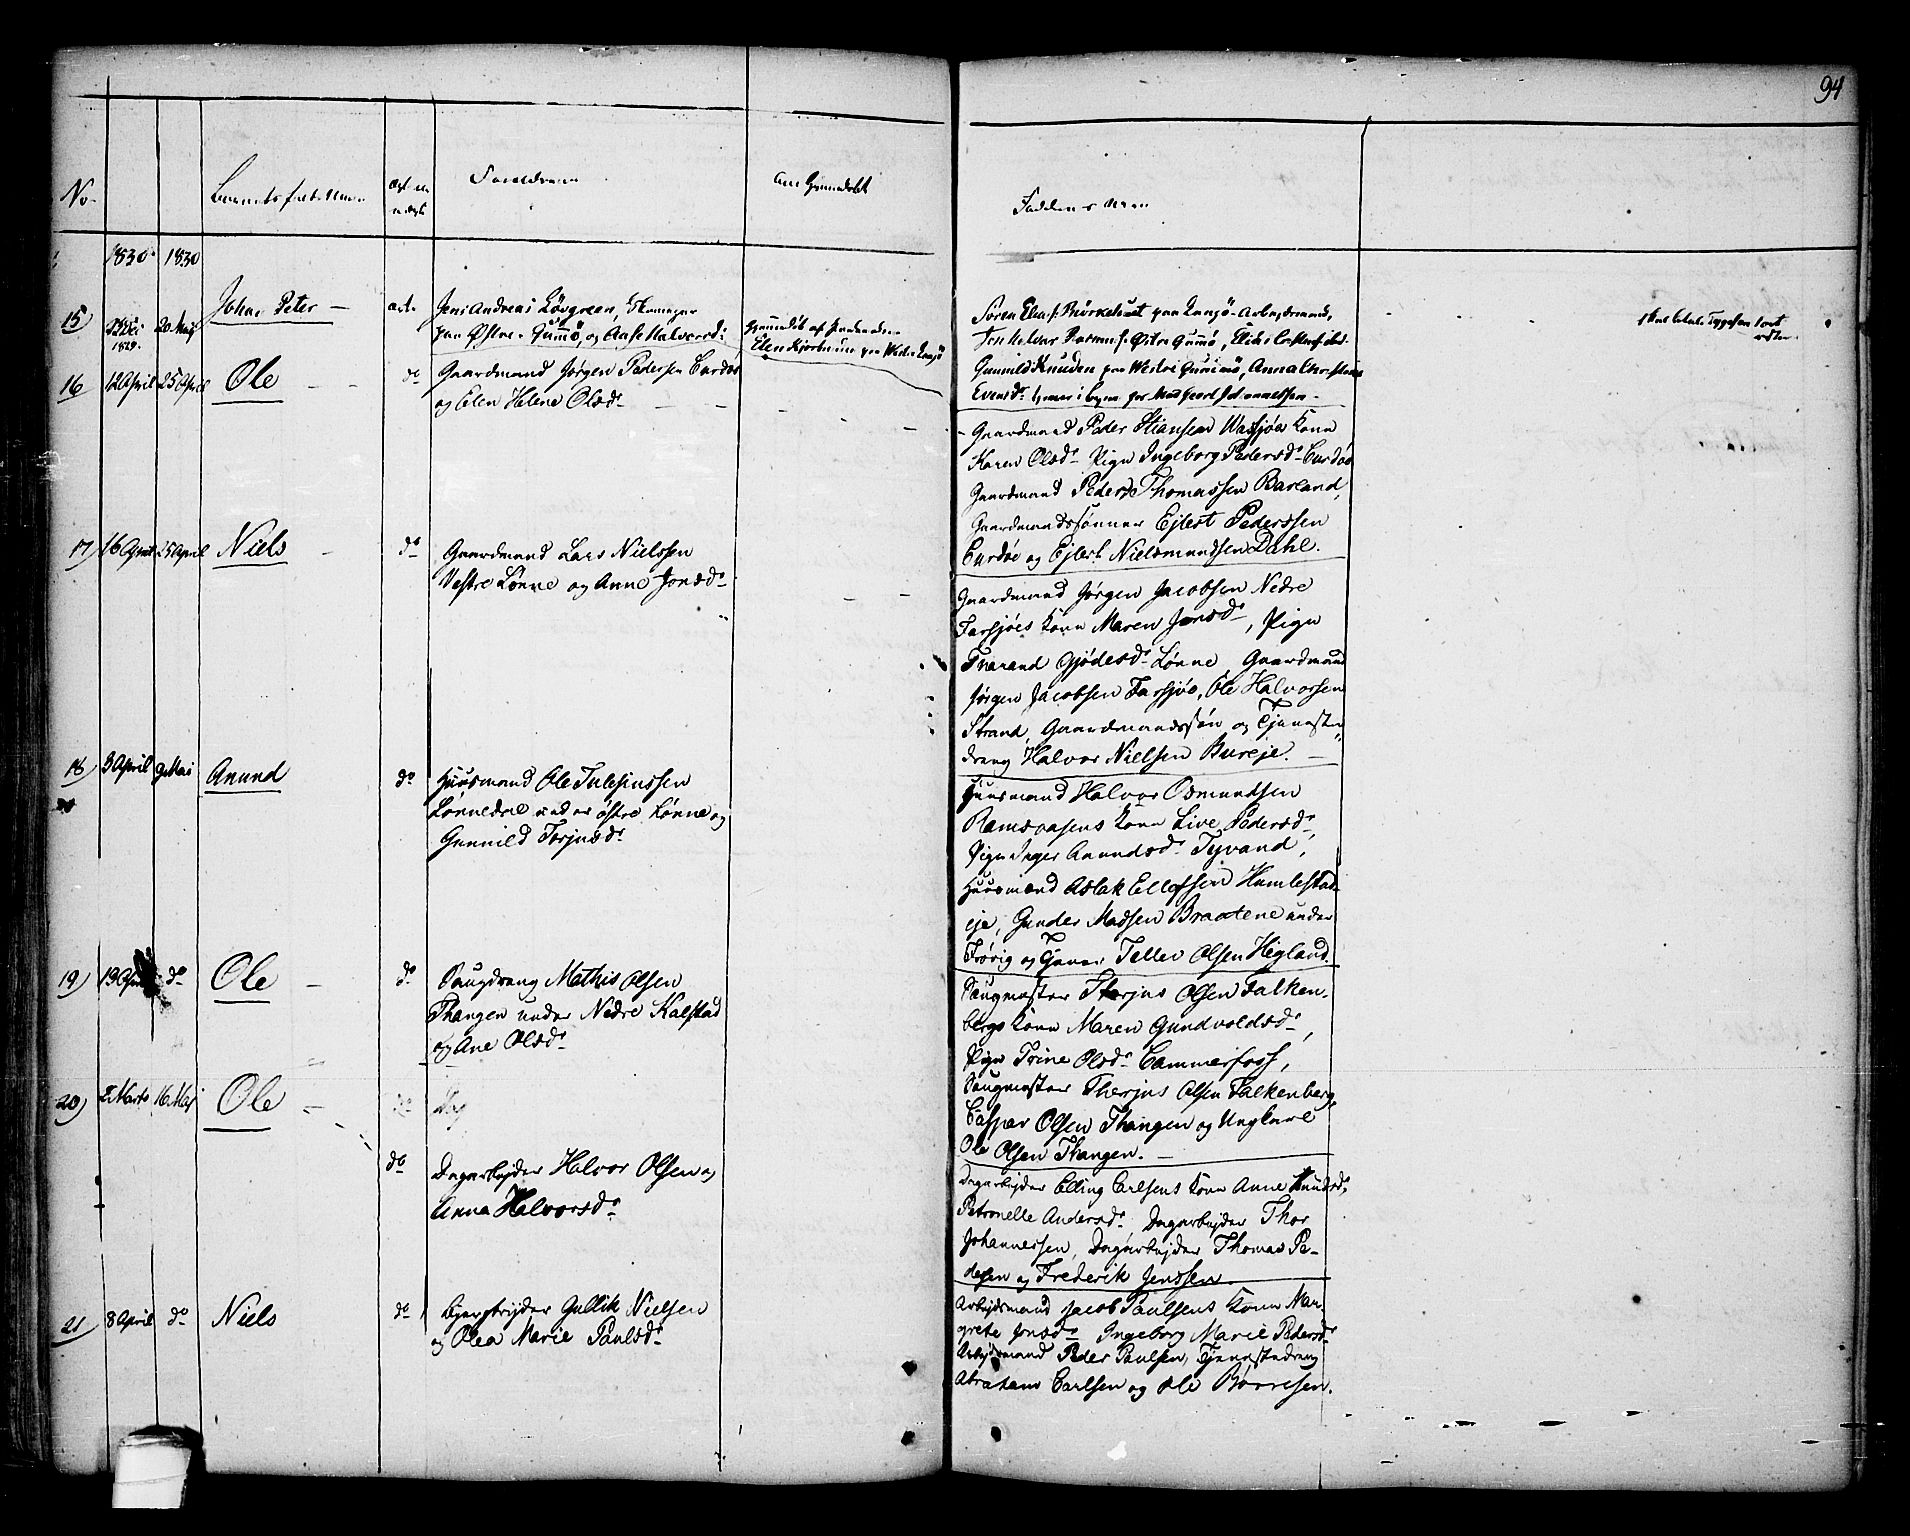 94
No.
Barnets fulde Navn
Forældrene
om hjemmedøbt
Faddernes Navn
1830 1830
15 1829. 20 Maj Johan Peter - ægte
Jens Andreas Løvgreen,
paa Østre Gumø, og Anse Halvorsd:
hjemmedøbt af
Elen paa Vestre Langø
Søren Elias s. Bürkelund paa Langø Arbeidsmand,
Østre Gumø,
Gunnild Knudsen paa Vestre Gumø, Anna
Evensd:
16 12 April 25 April Ole - - do
Gaardmand Jørgen Pedersen Curdøe
og Elen Helene Olsd:
Gaardmand Peder Stiansen Wasjøes Kone
Karen Olsd: Pige Ingeborg Pedersd: Curdøe
Gaardmand Peder Thomassen Barland,
Gaardmandssønner Ejlert Pederssen
Curdøe og Ejlert Nielsmundsen Dahl.
17) 16 April 25 April Niels - do
Gaardmand Lars Nielssen
Vestre Lønne og Anne Jonsd:
Gaardmand Jørgen Jacobsen Nedre
Farsjøes Kone Maren Jonsd:, Pige
Tharand Gjødesd: Lønne, Gaardmand
Jørgen Jacobsen Farsjøe, Ole Halvorsen
Strand, Gaardmandssøn og Tjeneste-
dreng Halvor Nielsen Bureje. -
18) 3 April 9 Mai Anund do
Huusmand Ole Tulesiussen
Lønnedal under østre Lønne og
Gunnild Torjusd:
Huusmand Halvor Osmundsen
Ramsaasens Kone Live Pedersd:,
Pige Inger Anundsd: Tyvand,
Huusmænd Aslak Ellefsen Humlestad-
eje, Gunder Madsen Braatene under
Frøvig og Tellev Olsen Heigland.
19) 19 April do Ole - do
Saugdreng Mathis Olsen
Thangen under Nedre Kalstad
og Ane Olsd:
Saugmester Therjus Olsen Falken-
bergs Kone Maren Gundvoldsd:,
Pige Trine Olsd: Cammerfoss,
Saugmester Therjus Olsen Falkenberg,
Casper Olsen Thangen og Ungkarl
Ole Olsen Thangen. -
20) 2 Marts 16 Maj Ole -
do
Dagarbejder Halvor Olsen og
Anna Halvorsd:
Dagarbejder Elling Carlsens Kone Anne Knudsd:,
Petronelle Andersd: Dagarbejder Thor
Johannessen, Dagarbejder Thomas Pe-
dersen og Frederik Jenssen.
21 8 April do Niels do
Gullik Nielsen
og Olea Marie Paulsd:
Arbejdsmand Jacob Paulsens Kone Mar-
grete Jonsd: Ingeborg Marie Pedersd:
Arbejdsmand Peder Paulsen, Tjenestedreng
Abraham Carlsen og Ole Børresen.